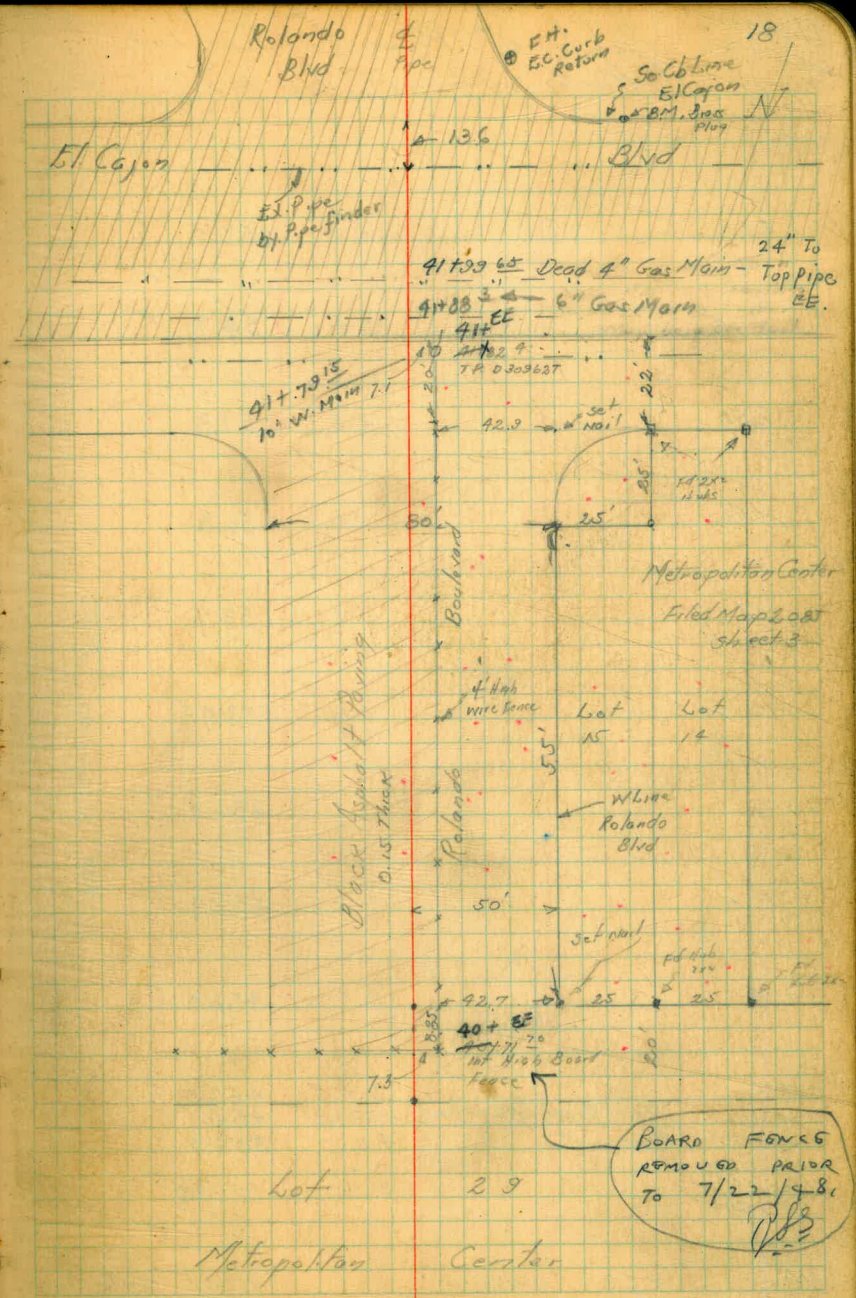 18
Rolando
Blvd
℄
Pipe
F.H.
E.C. Curb
Return
So. Cb Line
El Cajon
B.M. Brass
Plug
N
136
El Cajon
Blvd
Ex. Pipe
by Pipe finder
41+99 65 Dead 4" Gas Main -
24" To
Top Pipe
EE.
41+88 3
6" Gas Main
EE
41+
T.P. D30962T
20'
22'
41+79 15
10" W. Main
7.1
42.9
Set
Nail
Fd 2x2
Hubs
25'
25'
80'
Metropolitan Center
Filed Map 2085
Sheet 3
Boulevard
Rolando
4' High
Wire Fence
Lot
15
Lot
14
Black Asphalt Paving
0.15 Thick
55'
W Line
Rolando
Blvd
50'
Set Nail
Fd Hub
Fd
42.7
25
25
8.85
40+ EE
70
Int High Board
Fence
7.3
20'
BOARD FENCE
REMOVED PRIOR
TO 7/22/48.
Lot 29
Metropolitan Center